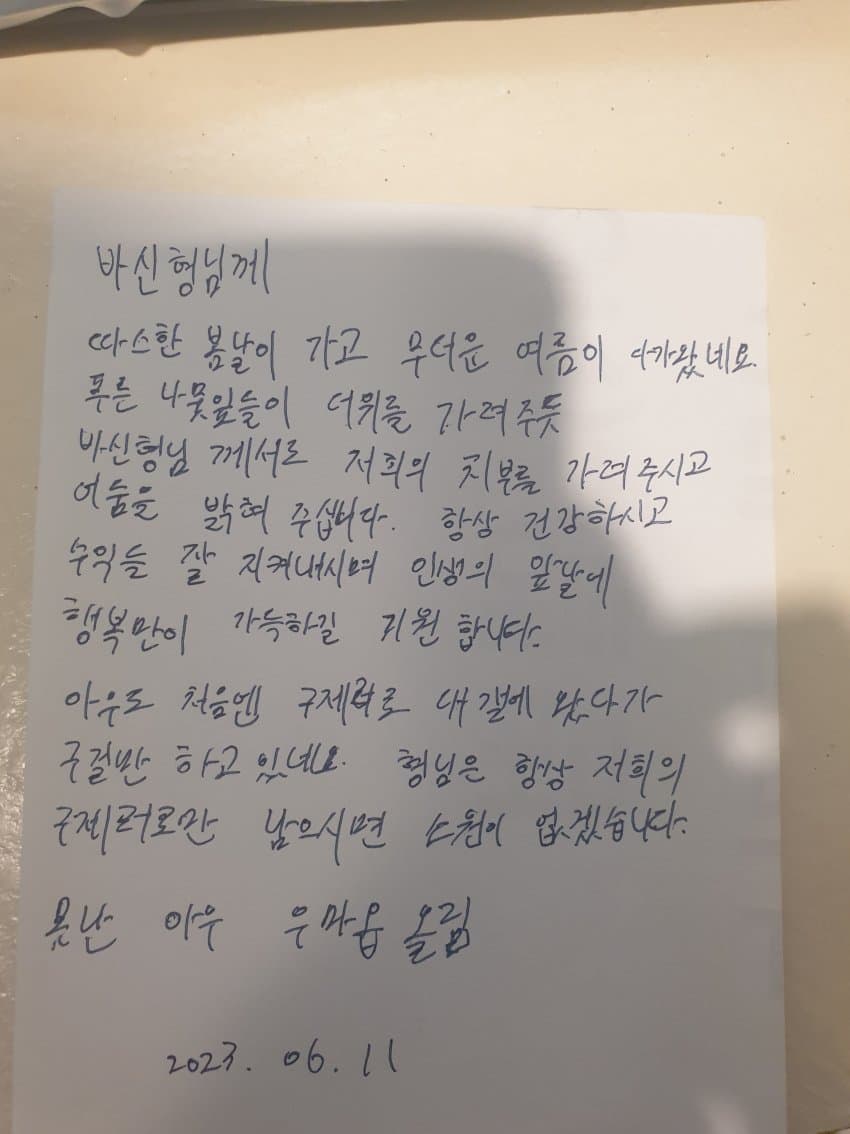 바신형님께
따스한 봄날이 가고 무더운 여름이 다가왔네요.
푸른 나뭇잎들이 더위를 가려주듯
바신형님 께서도 저희의 치부를 가려주시고
어둠을 밝혀 주십니다. 항상 건강하시고
수익들 잘 지켜내시며 인생의 앞날에
행복만이 가득하길 기원합니다.
아우도 처음엔 구제러로 대갤에 왔다가
구걸만 하고 있네요. 형님은 항상 저희의
구제러로만 남으시면 소원이 없겠습니다.
못난 아우 우마옵 올림
2023. 06. 11